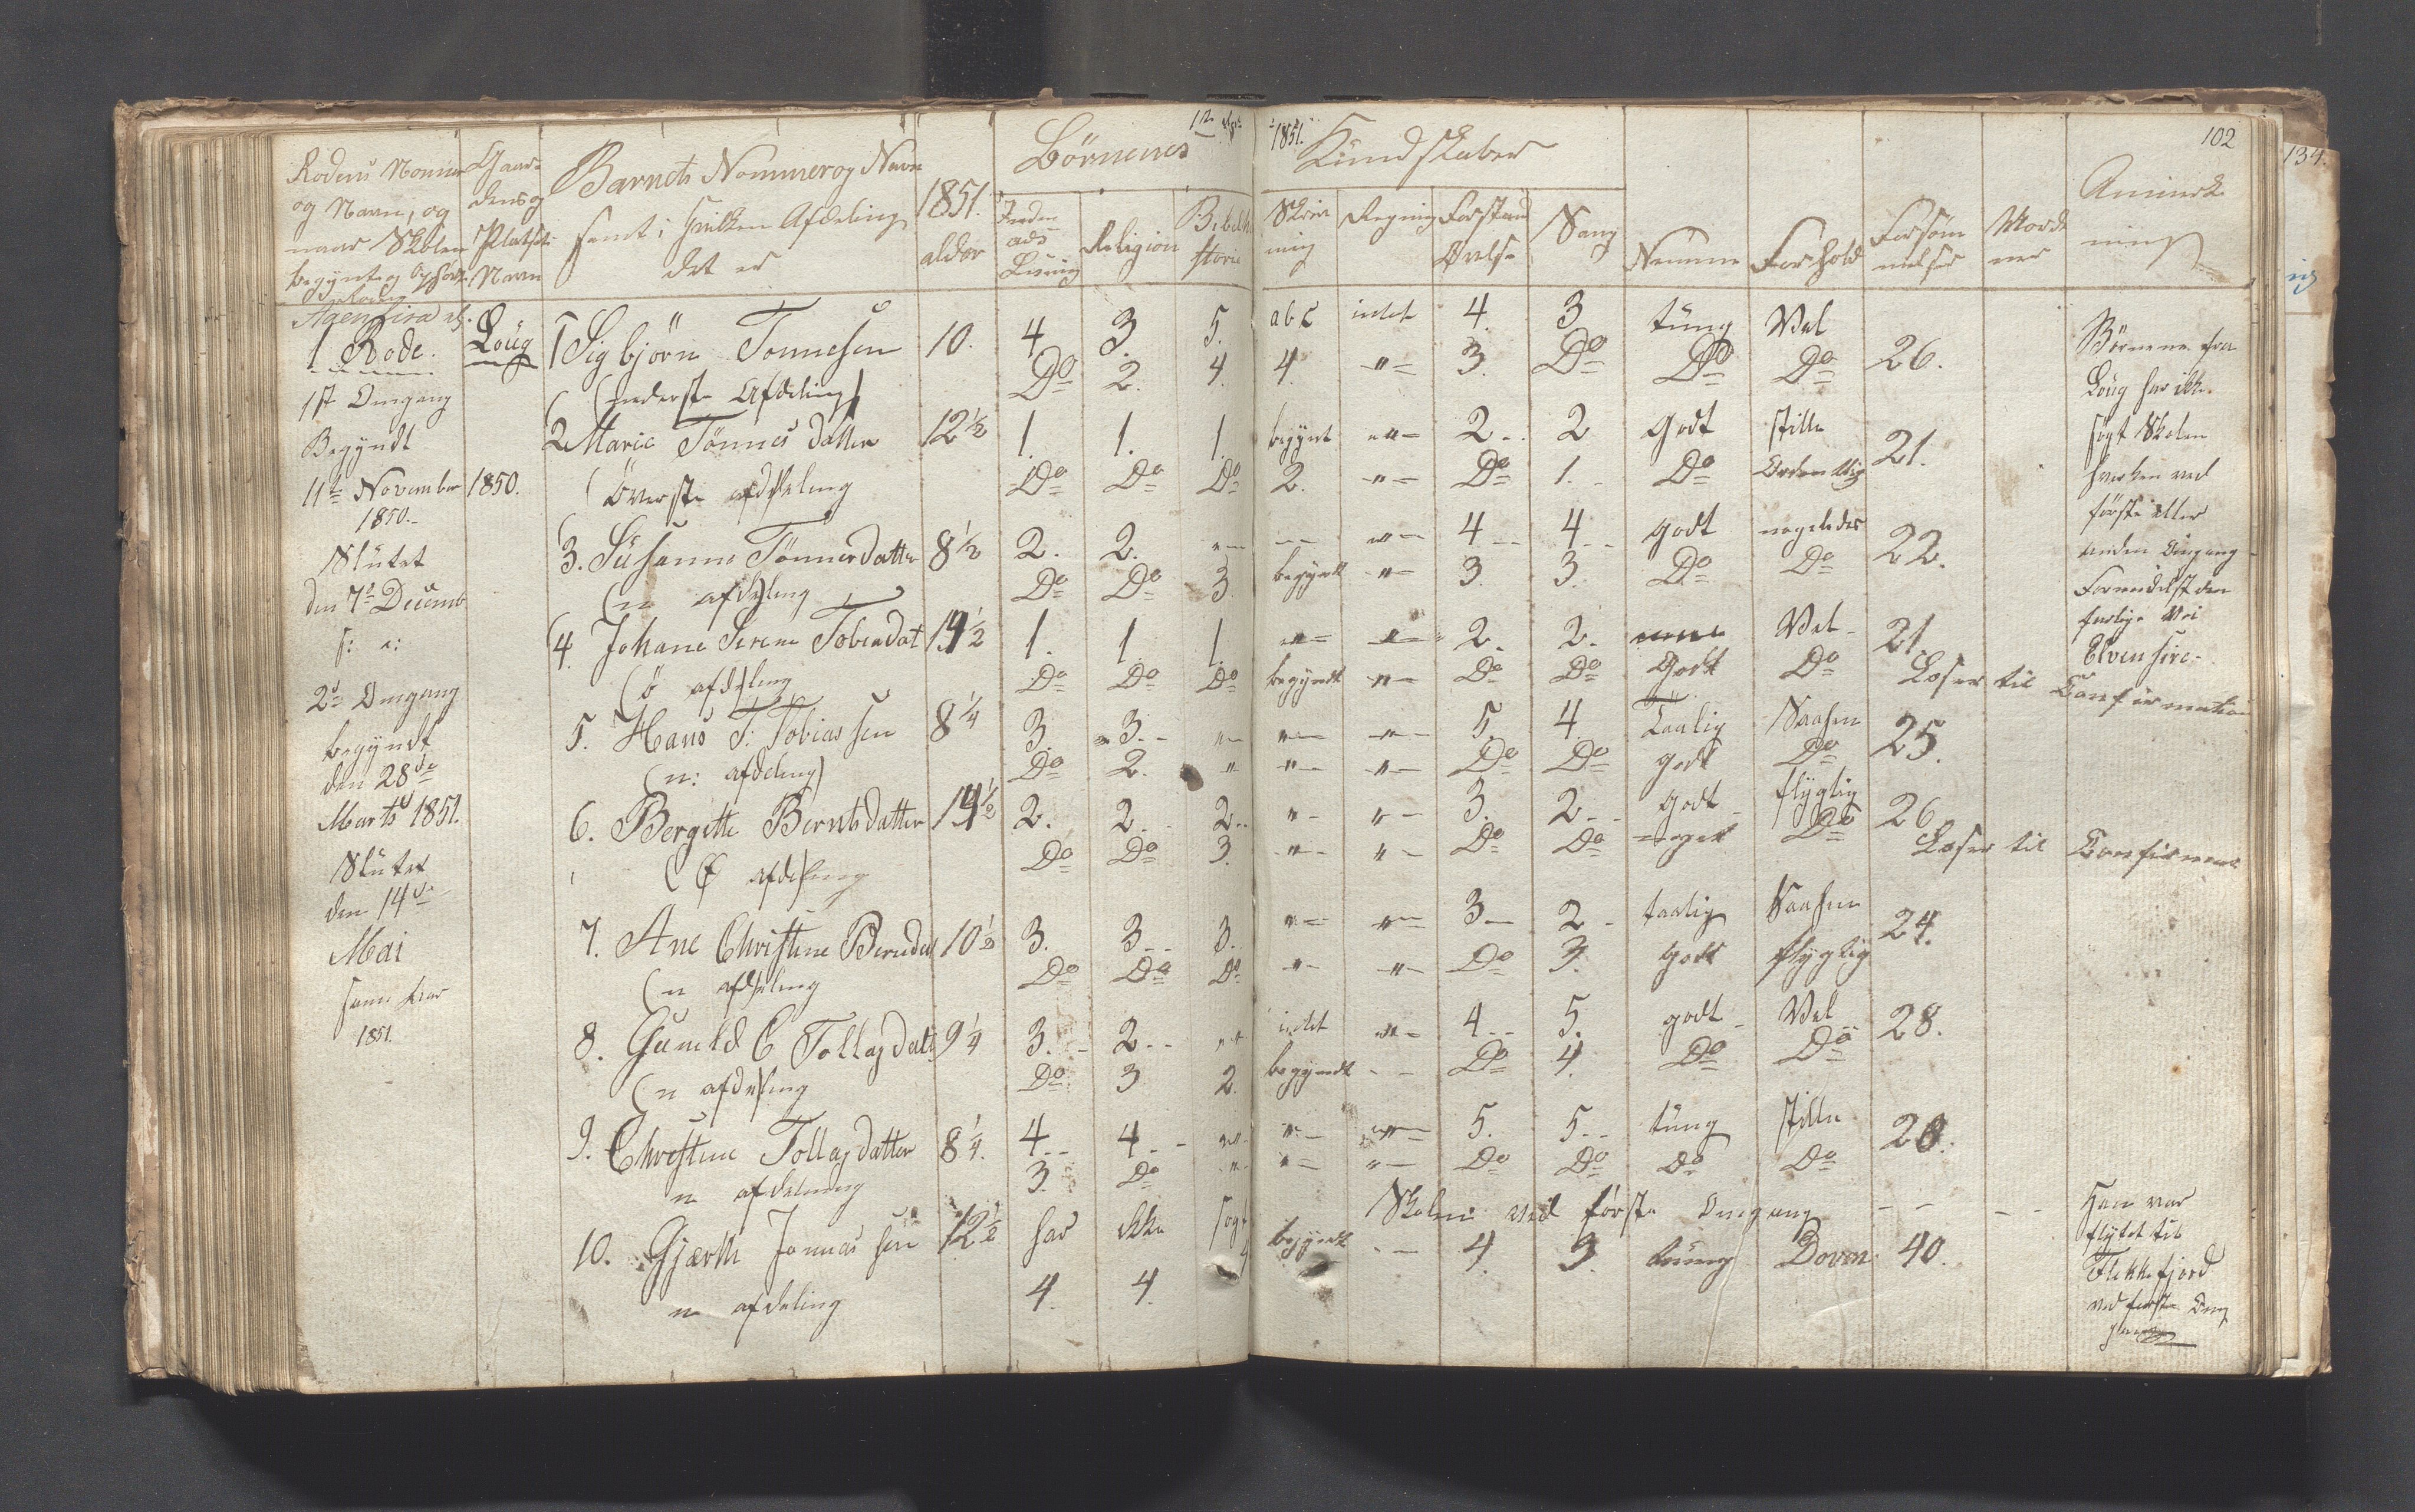 102
134.
1851.
Rodens Nommer
og Navn, og
naar Skolen
begynt og
Gaar-
dens og
Pladsets
Navn
Barnets Nommer og Navn
samt i hvilken Afdeling
det er
1851.
alder
Börnenes Kundskaber
Inden
ads
Læsning
Religion
Bibelhi
storie
Skriv
ning
Regning
Forstand
Övelse
Sang
Nemme
Forhold
Forsöm
melser
Anmerk
ning
1 Rode. Loug 1 Sigbjörn Tonnesen 10. 4 3 5. abc intet 4. 3 tung Vel
Do 2. 4. 4. " 3. Do Do Do 26.
1st Omgang (nederste Afdeling)
Begyndt 2 Marie Tönnes datter 12½ 1. 1. 1. begynt " 2 2 Godt stille
11te November 1850. (Överste afdeling Do Do Do 2. " Do 1. Do Ordentlig 21.
1850.
Slutet 3. Susanne Tönnesdatter 8½ 2. 2. " " 4 4 godt nogeledes
den 7de Decemb (n afdeling Do Do 3. begyndt " 3 3. Do Do 22.
s: a:
4. Johane Serene Tobiadat 14½ 1. 1. 1. " " 2. 2. Vel 21
(ö afdeling Do Do Do begyndt " Do Do Godt Do Læser til Confirmation
2den Omgang
begyndt 5. Hans T: Tobiassen 8¼ 3. 3. " " " 5. 4. Taalig
den 28de (n: afdeling) Do 2. " " " Do Do godt Do 25.
Marts 1851. 6. Bergitte Berntsdatter 14½ 2. 2. 2. " " 3. 2. Godt flygtig 26
(Ö afdeling Do Do 3. " " Do Do Do Læser til
Slutet
den 14de
Mai 7. Ane Christine Berndat 10½ 3. 3. 3. " " 3 2 taalig
(n afdeling Do Do Do " " Do 3. godt flygtig 24.
samme Aar
1851. 8. Guneld C Tollagdatt 9¼ 3. 2. " intet " 4 5. godt Vel 28.
(n afdeling Do 3 2. begyndt Do 4. Do Do
9. Christine Tollagdatter 8¼. 4 4 " " " 5. 5 tung stille
n afdeling 3. Do " " " Do Do Do Do 28.
10. Gjærth Jonnas sen 12½ har ikke sögt Skolen ved förste Omgang
n afdeling 4. 4. 4 begyndt 4. 3. tung Doven 40.
Börnene fra
Loug har ikke
sögt Skolen
hverken ved
förste eller
anden Omgang
Formedelst den
farlige Vei
Han var
flytet til
Flekkefjord
ved förste Om